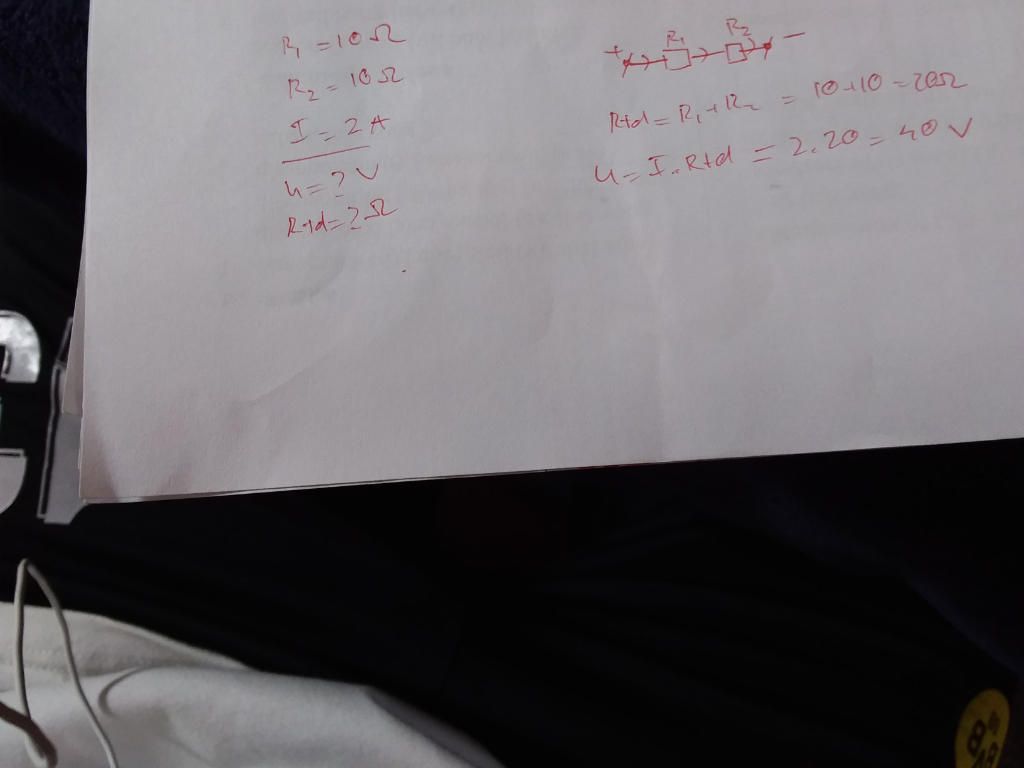 R₁ = 10 Ω
R₂ = 10 Ω
I = 2 A
U = ? V
Rtd = ? Ω
+ R₁ R₂ −
Rtd = R₁ + R₂ = 10 + 10 = 20Ω
U = I . Rtd = 2.20 = 40 V
8